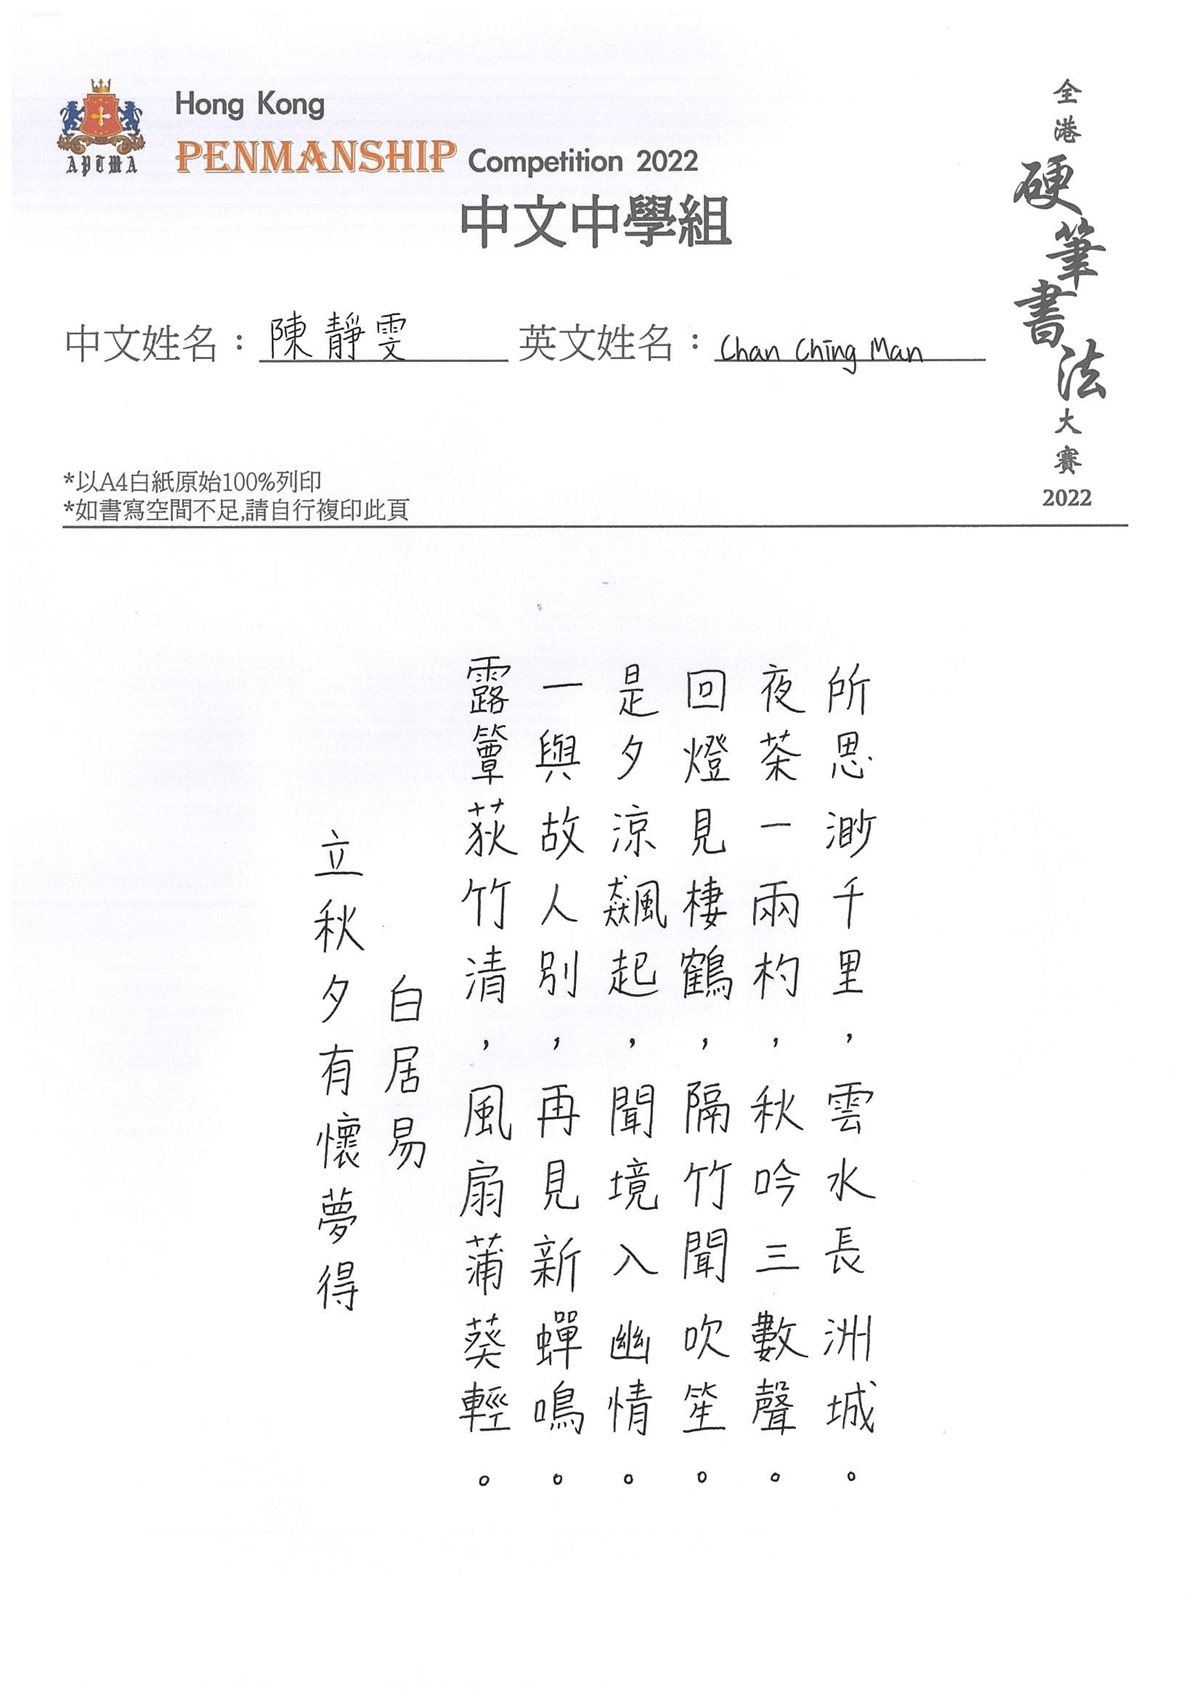 Hong Kong
PENMANSHIP Competition 2022
中文中學組
APTMA
全港硬筆書法大賽
2022
中文姓名：陳靜雯 英文姓名：Chan Ching Man
*以A4白紙原始100%列印
*如書寫空間不足,請自行複印此頁
立秋夕有懷夢得
白居易
露簟荻竹清，風扇蒲葵輕。
一與故人別，再見新蟬鳴。
是夕涼飆起，聞境入幽情。
回燈見棲鶴，隔竹聞吹笙。
夜茶一兩杓，秋吟三數聲。
所思渺千里，雲水長洲城。